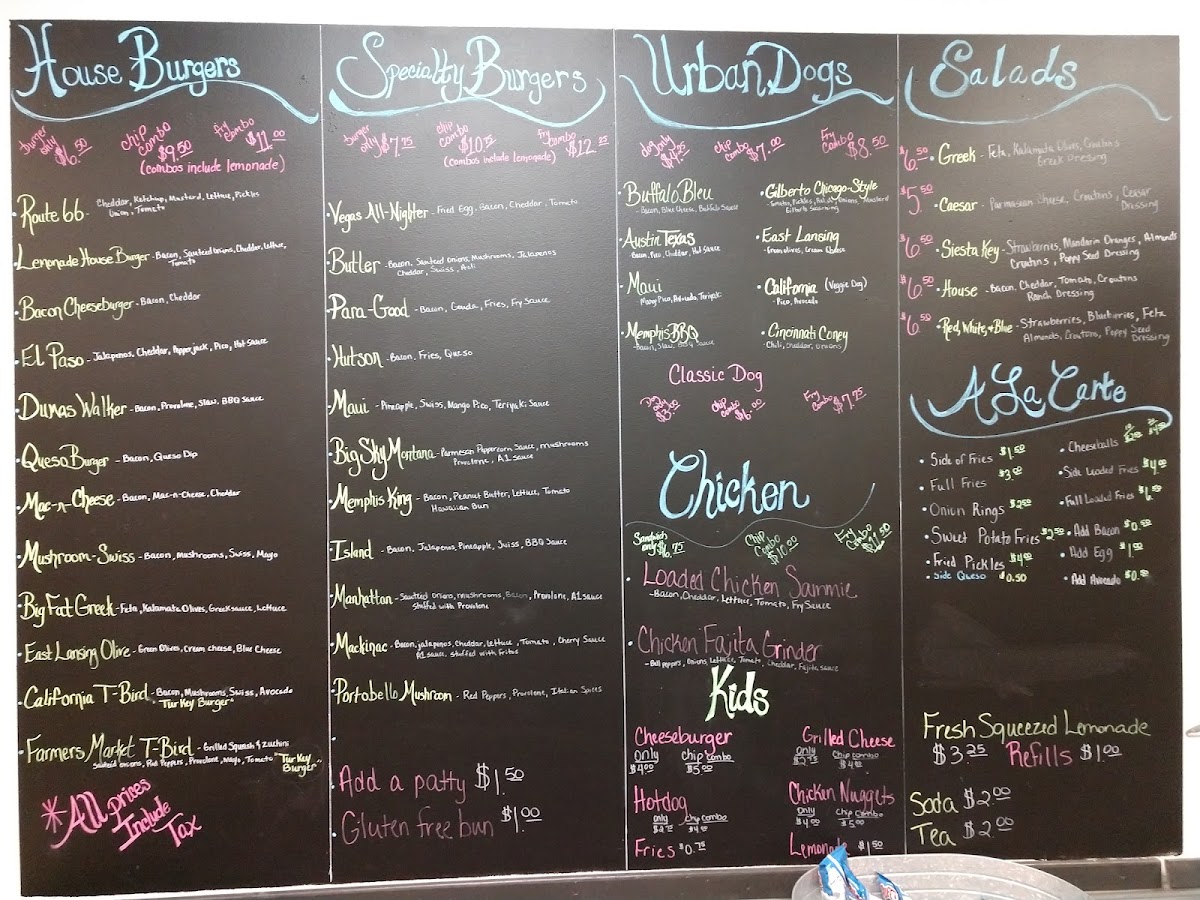 House Burgers
burger only $6.50 chip combo $9.50 Fry combo $11.00
(combos include lemonade)
Route 66 - Cheddar, Ketchup, Mustard, Lettuce, Pickles
Onion, Tomato
Lemonade House Burger - Bacon, Sauteed Onions, Cheddar, Lettuce,
Tomato
Bacon Cheeseburger - Bacon, Cheddar
El Paso - Jalapenos, Cheddar, Pepperjack, Pico, Hot Sauce
Dunas Walker - Bacon, Provolone, Slaw, BBQ Sauce
Queso Burger - Bacon, Queso Dip
Mac-n-Cheese - Bacon, Mac-n-Cheese, Cheddar
Mushroom-Swiss - Bacon, Mushrooms, Swiss, Mayo
Big Fat Greek - Feta, Kalamata Olives, Greek sauce, Lettuce
East Lansing Olive - Green Olives, Cream cheese, Blue Cheese
California T-Bird - Bacon, Mushrooms, Swiss, Avocado
"Turkey Burger"
Farmers Market T-Bird - Grilled Squash & Zuchini
sauteed onions, Red Peppers, Provolone, Mayo, Tomato "Turkey
Burger"
*All prices
Include
Tax
Specialty Burgers
burger only $7.75 chip combo $10.75 Fry combo $12.25
(combos include lemonade)
Vegas All-Nighter - Fried Egg, Bacon, Cheddar, Tomato
Butler - Bacon, Sauteed Onions, Mushrooms, Jalapenos
Cheddar, Swiss, Aoli
Para-Good - Bacon, Gouda, Fries, Fry Sauce
Hutson - Bacon, Fries, Queso
Maui - Pineapple, Swiss, Mango Pico, Teriyaki Sauce
Big Sky Montana - Parmesan Peppercorn Sauce, mushrooms
Provolone, A1 sauce
Memphis King - Bacon, Peanut Butter, Lettuce, Tomato
Hawaiian Bun
Island - Bacon, Jalapeno, Pineapple, Swiss, BBQ Sauce
Manhattan - Sauteed onions, mushrooms, Bacon, Provolone, A1 sauce
stuffed with Provolone
Mackinac - Bacon, jalapenos, Cheddar, lettuce, Tomato, Cherry Sauce
A1 sauce. stuffed with fritos
Portobello Mushroom - Red Peppers, Provolone, Italian Spices
Add a patty $1.50
Gluten free bun $1.00
Urban Dogs
dog only $4.25 chip combo $7.00 Fry combo $8.50
Buffalo Bleu
- Bacon, Blue Cheese, Buffalo Sauce
Gilberto Chicago-Style
- Tomatos, Pickles, Relish, Onions, Mustard
Austin Texas
Bacon, Pico, Cheddar, Hot Sauce
East Lansing
- Green olives, Cream Cheese
Maui
Mango Pico, Avocado, Teriyak
California (Veggie Dog)
- Pico, Avocado
Memphis BBQ
Bacon, Slaw, BBQ Sauce
Cincinnati Coney
- Chili, Cheddar, Onions
Classic Dog
Dog only $3.00 Chip combo $6.00 Fry combo $7.25
Chicken
Sandwich only $6.75 Chip Combo $10.00 Fry Combo $11.50
Loaded Chicken Sammie
- Bacon, Cheddar, Lettuce, Tomato, Fry Sauce
Chicken Fajita Grinder
- Bell peppers, Onions, Lettuce, Tomato, Cheddar, Fajita sauce
Kids
Cheeseburger
Only $4.00 Chip combo $5.00
Grilled Cheese
Only $2.75 Chip combo $4.00
Hotdog
only $2.75 Chip combo $4.00
Chicken Nuggets
Only $4.00 Chip Combo $5.00
Fries $0.75
Lemonade $1.50
Salads
$6.50 Greek - Feta, Kalamata Olives, Croutons
Greek Dressing
$5.50 Caesar - Parmasian Cheese, Croutons, Ceasar
Dressing
$6.50 Siesta Key - Strawberries, Mandarin Oranges, Almonds
Croutons, Poppy Seed Dressing
$6.50 House - Bacon, Cheddar, Tomato, Croutons
Ranch Dressing
$6.50 Red, White, & Blue - Strawberries, Blueberries, Feta
Almonds, Croutons, Poppy Seed
Dressing
A La Carte
Side of Fries $1.50
Full Fries $3.00
Onion Rings $2.50
Sweet Potato Fries $2.50
Fried Pickles $4.00
Side Queso $0.50
Cheeseballs
Side Loaded Fries $4.00
Full Loaded Fries
Add Bacon $0.50
Add Egg $1.00
Add Avocado $0.50
Fresh Squeezed Lemonade
$3.25 Refills $1.00
Soda $2.00
Tea $2.00